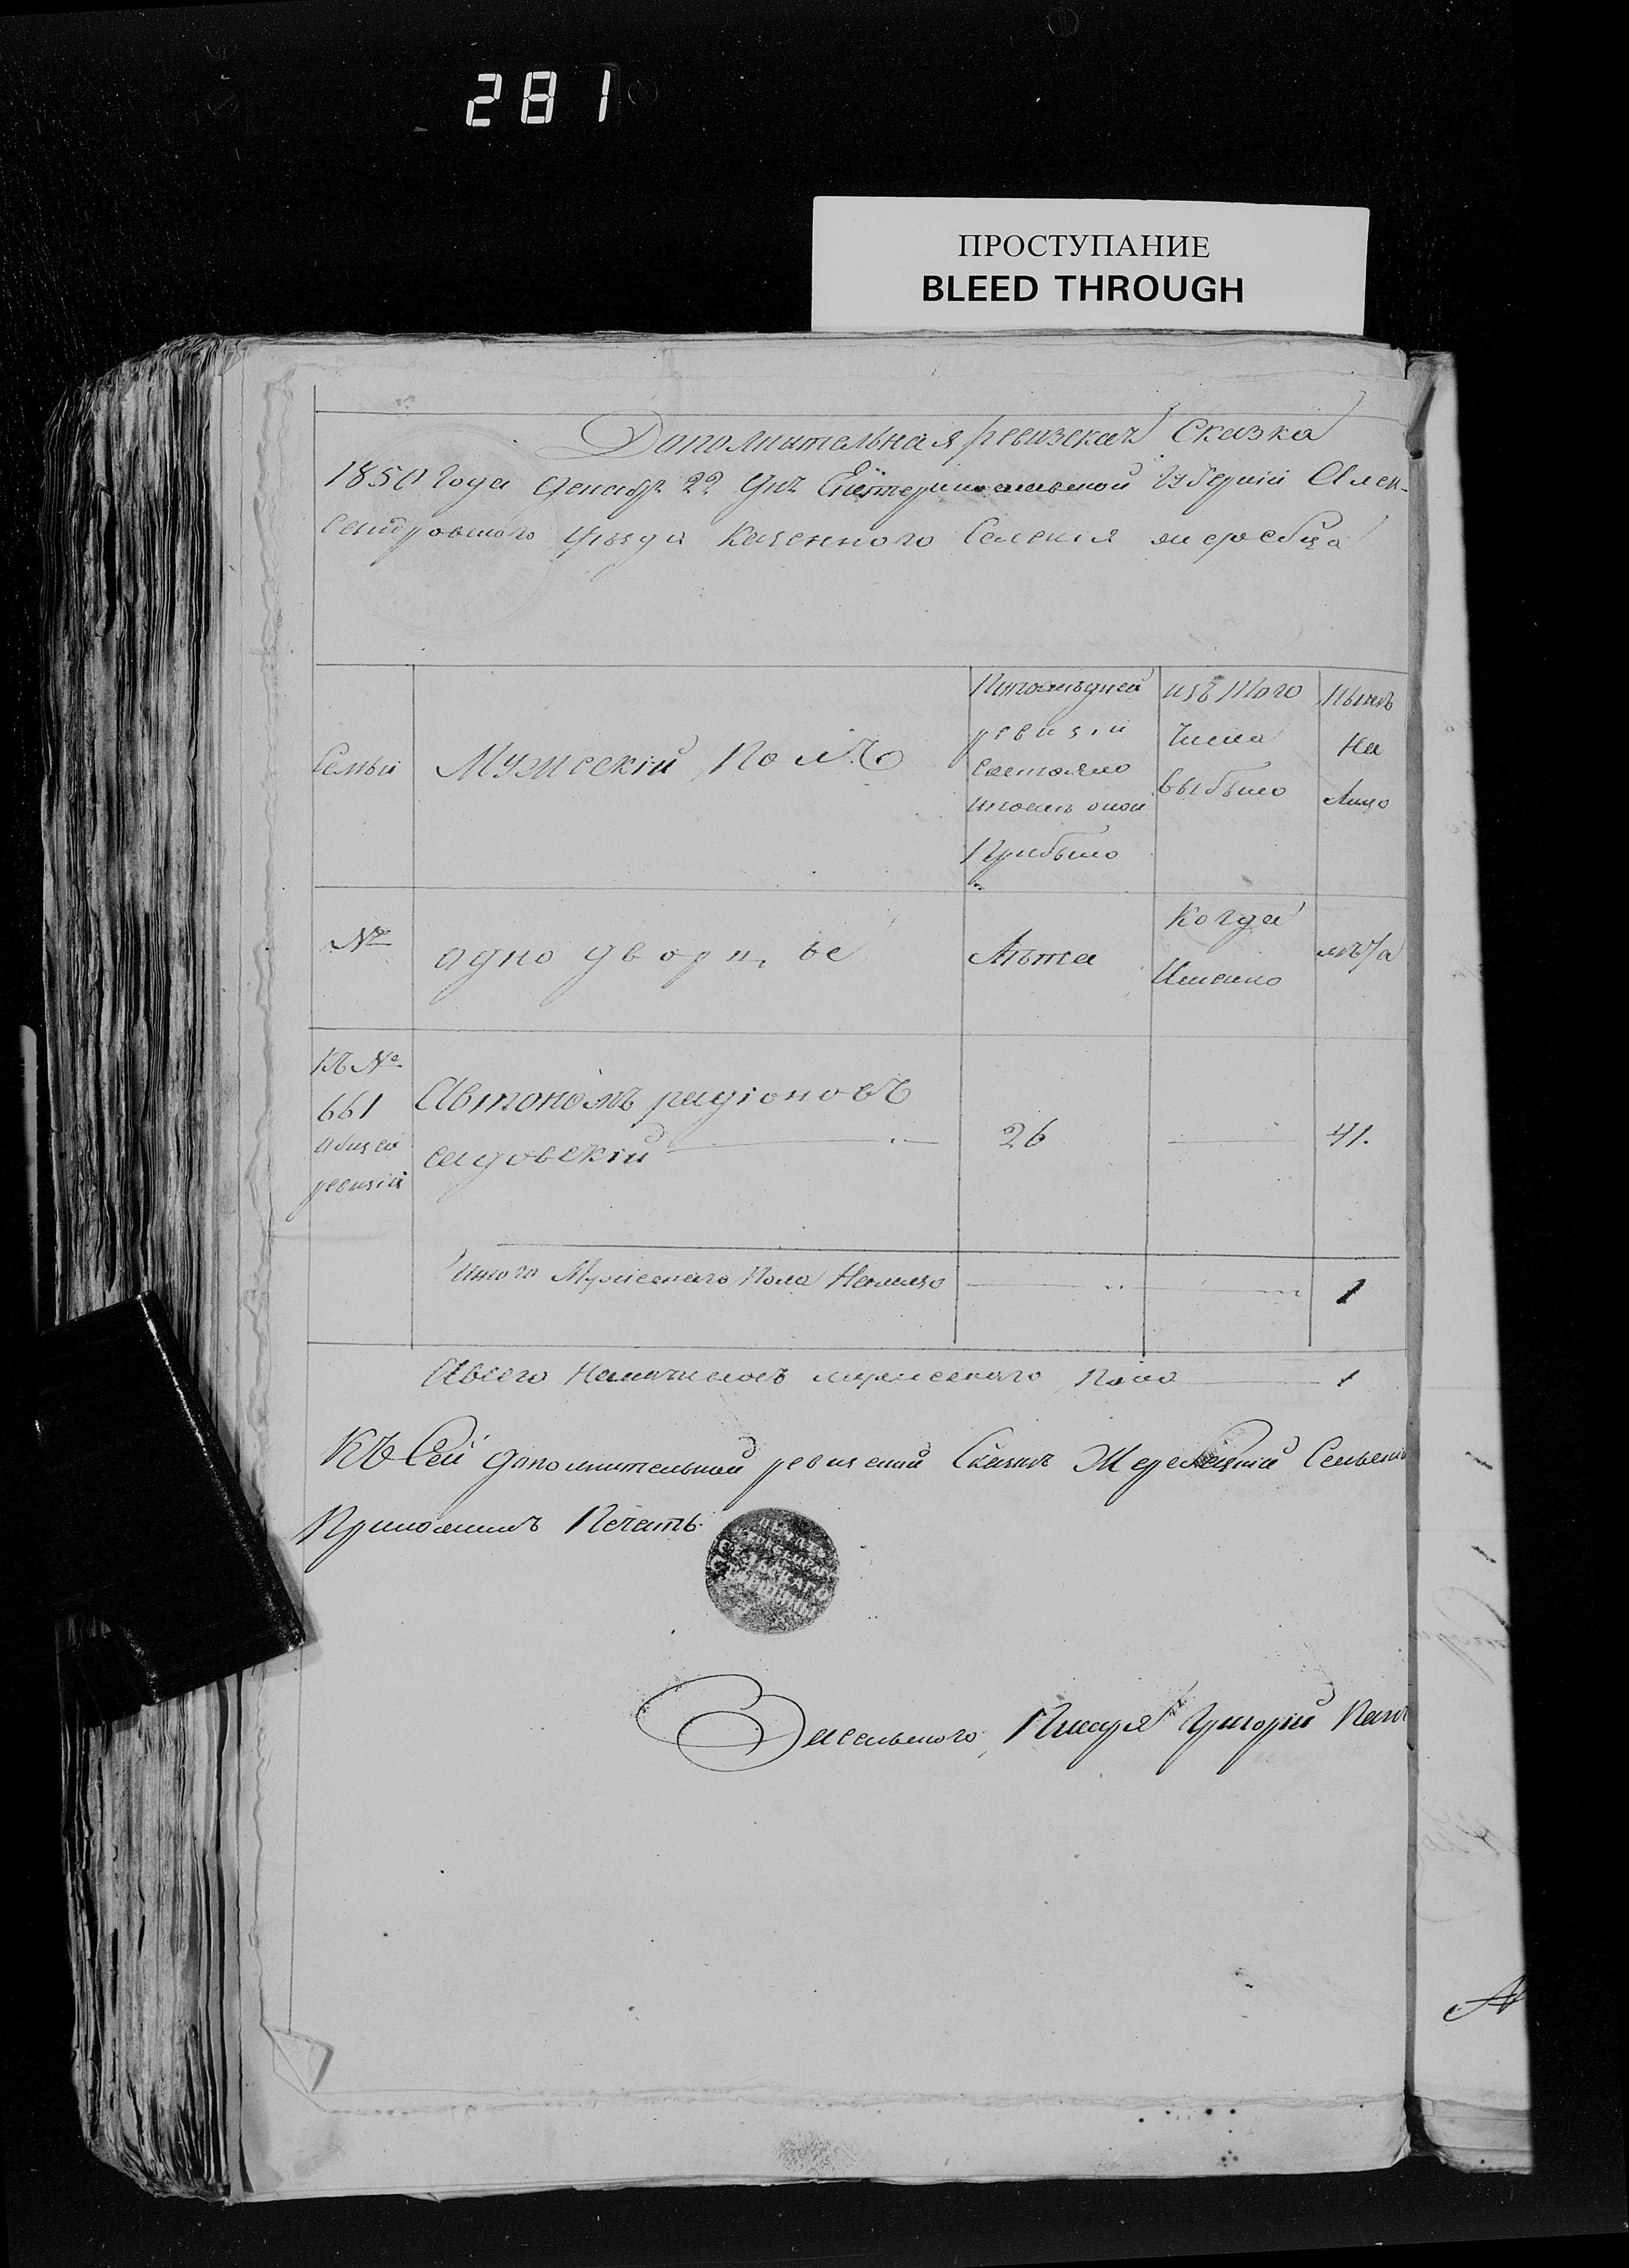 281
ПРОСТУПАНИЕ
BLEED THROUGH
Дополнительная ревизская Сказка
1850 года декабря 22 дня Екатеринославской Губерніи Алек-
сандровского уѣзда казенного Селенія жеребца
Семьи
Мужескій Полъ
По послѣдней
ревизіи
Состояло
и после оной
Прибыло
изъ того
Числа
выбыло
Нынѣ
На
Лицо
№
одно двор цы
Лѣта
Когда
Именно
лѣта
Къ №
661
общей
ревизіи
Автономъ радіоновъ
садовскій
26
41.
Итого Мужескаго Пола Налицо
1
Авсего мужескаго Пола
1
Къ Сей дополнительной ревизской Сказкѣ Жеребецкій Сельскій
Приложилъ Печать
Засельского Писаря Григорій